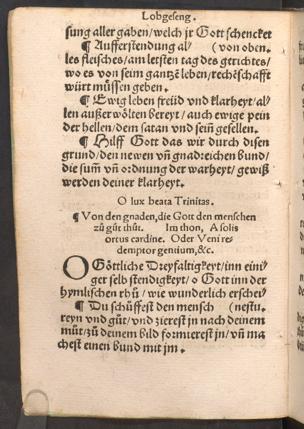 Lobgeseng.
sung aller gaben/welch jr Gott schencket
¶ Aufferstendung al/ (von oben.
les fleisches/am letsten tag des gerichtes/
wo es von seim gantzē leben/rechēschafft
würt müssen geben.
¶ Ewig leben freüd vnd klarheyt/al/
len außerwölten bereyt/auch ewige pein
der hellen/dem satan vnd seiñ gesellen.
¶ Hilff Gott das wir durch disen
grund/den newen vñ gnadreichen bund/
die sum̃ vñ ordnung der warheyt/gewiß
werden deiner klarheyt.
O lux beata Trinitas.
¶ Von den gnaden, die Gott den menschen
zů gůt thůt. Im thon, A solis
ortus cardine. Oder Veni re/
demptor gentium,&c.
O Göttliche Dreyfaltigkeyt/inn eini/
ger selbstendigkeyt/o Gott inn der
hymlischen rhů/wie wunderlich erschei/
¶ Du schüffest den mensch (nestu.
reyn vnd gůt/vnd zierest jn nach deinem
můt/zů deinem bild formierest jn/vñ ma
chest einen bund mit jm.